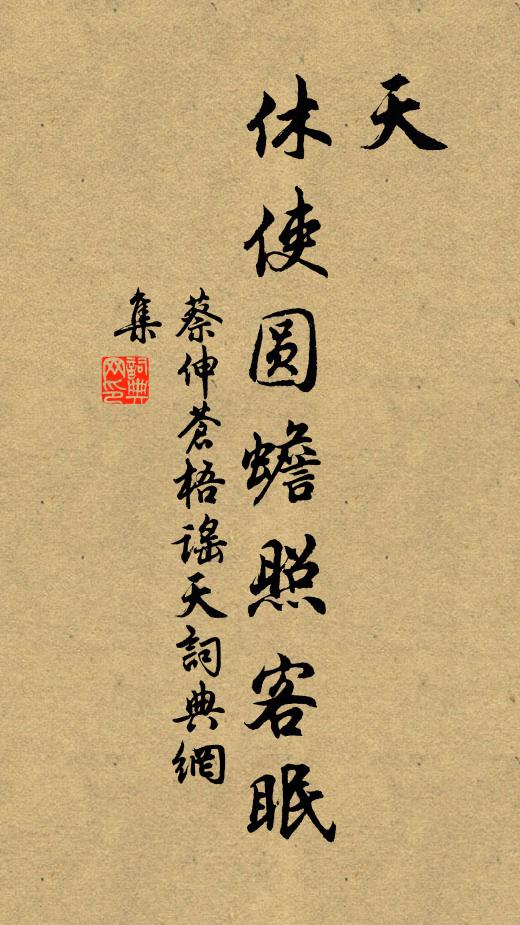 天
休使圆蟾照客眠
蔡伸蒼梧謠天詞典網
集
詞典
网印